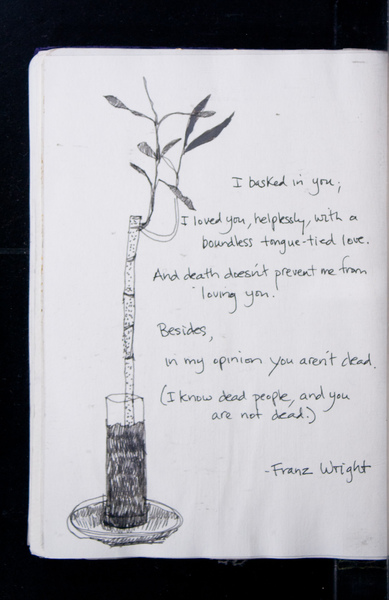 I basked in you;
I loved you, helplessly, with a
boundless tongue-tied love.
And death doesn't prevent me from
loving you.
Besides,
in my opinion you aren't dead.
(I know dead people, and you
are not dead.)
-Franz Wright